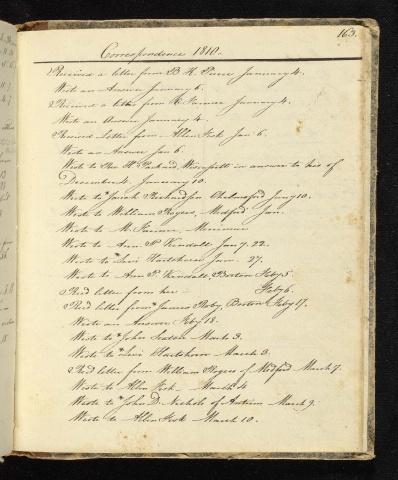 163.
Correspondence 1810.
Received a letter from B. K. Pierce January 4.
Wrote an Answer January 6.
Received a letter from K. Farmer January 4.
Wrote an Answer January 4.
Received Letter from Allen Fisk Jan 6.
Wrote an Answer Jan 6.
Wrote to Packard, in answer to his of
December 4. January 10.
Wrote to Josiah Richardson Chelmsford Jany 10.
Wrote to William Rogers, Medford Jan.
Wrote to M. Farmer,
Wrote to Ann P. Kendall Jany. 22.
Wrote to Levi Hartshorn Jan. 27.
Wrote to Ann P. Kendall, Boston Feby 5
Recd letter from her Feby 6.
Recd letter from James Roby, Boston Feby 17.
Wrote an Answer Feby 18.
Wrote to John March 3.
Wrote to Levi Hartshorn March 3.
Recd letter from William Rogers of Medford March 7.
Wrote to Allen Fisk March 4
Wrote to John D. Nichols of Antrim March 9.
Wrote to Allen Fisk March 10.